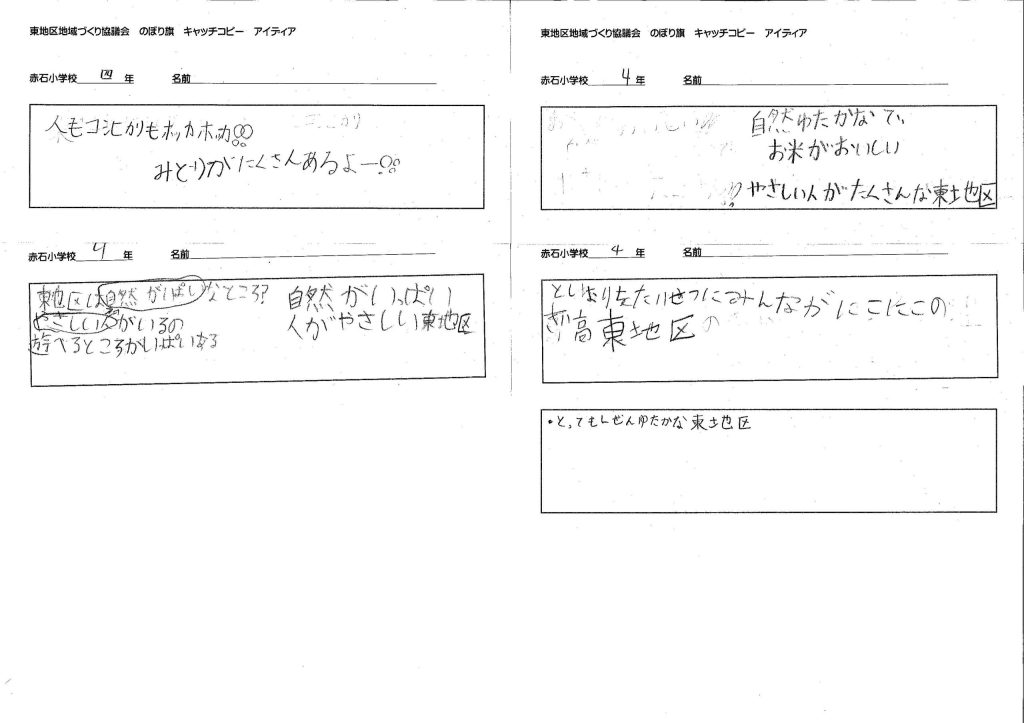 東地区地域づくり協議会 のぼり旗 キャッチコピー アイディア
赤石小学校 四 年 名前
人もコシヒカリもホッカホッカ!!
みどりがたくさんあるよー!!
赤石小学校 4 年 名前
東地区は自然がいぱいなところ?
やさしい人がいるの
遊べるところがいぱいある
自然がいっぱい
人がやさしい東地区
東地区地域づくり協議会 のぼり旗 キャッチコピー アイディア
赤石小学校 4 年 名前
自然ゆたかなで、
お米がおいしい
やさしい人がたくさんな東地区
赤石小学校 4 年 名前
たいせつにみんながにこにこの
高東地区の
・とってもしぜんゆたかな東地区